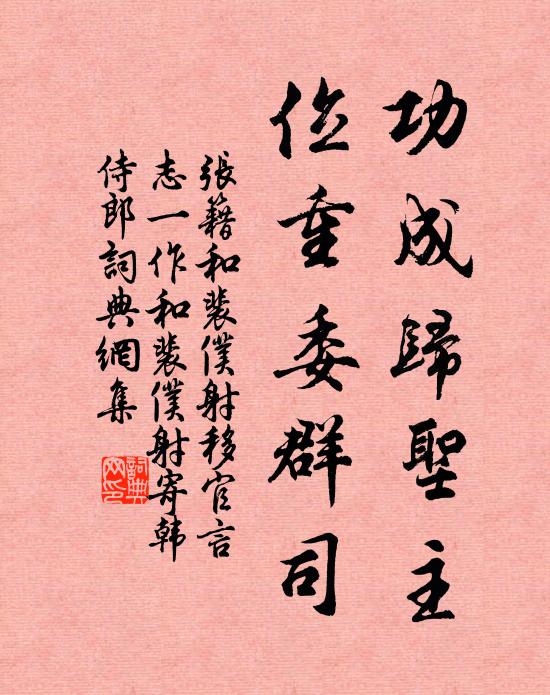 功成歸聖主
位重委群司
張籍和裴僕射移官言
志一作和裴僕射寄韓
侍郎詞典網集
詞典
网印